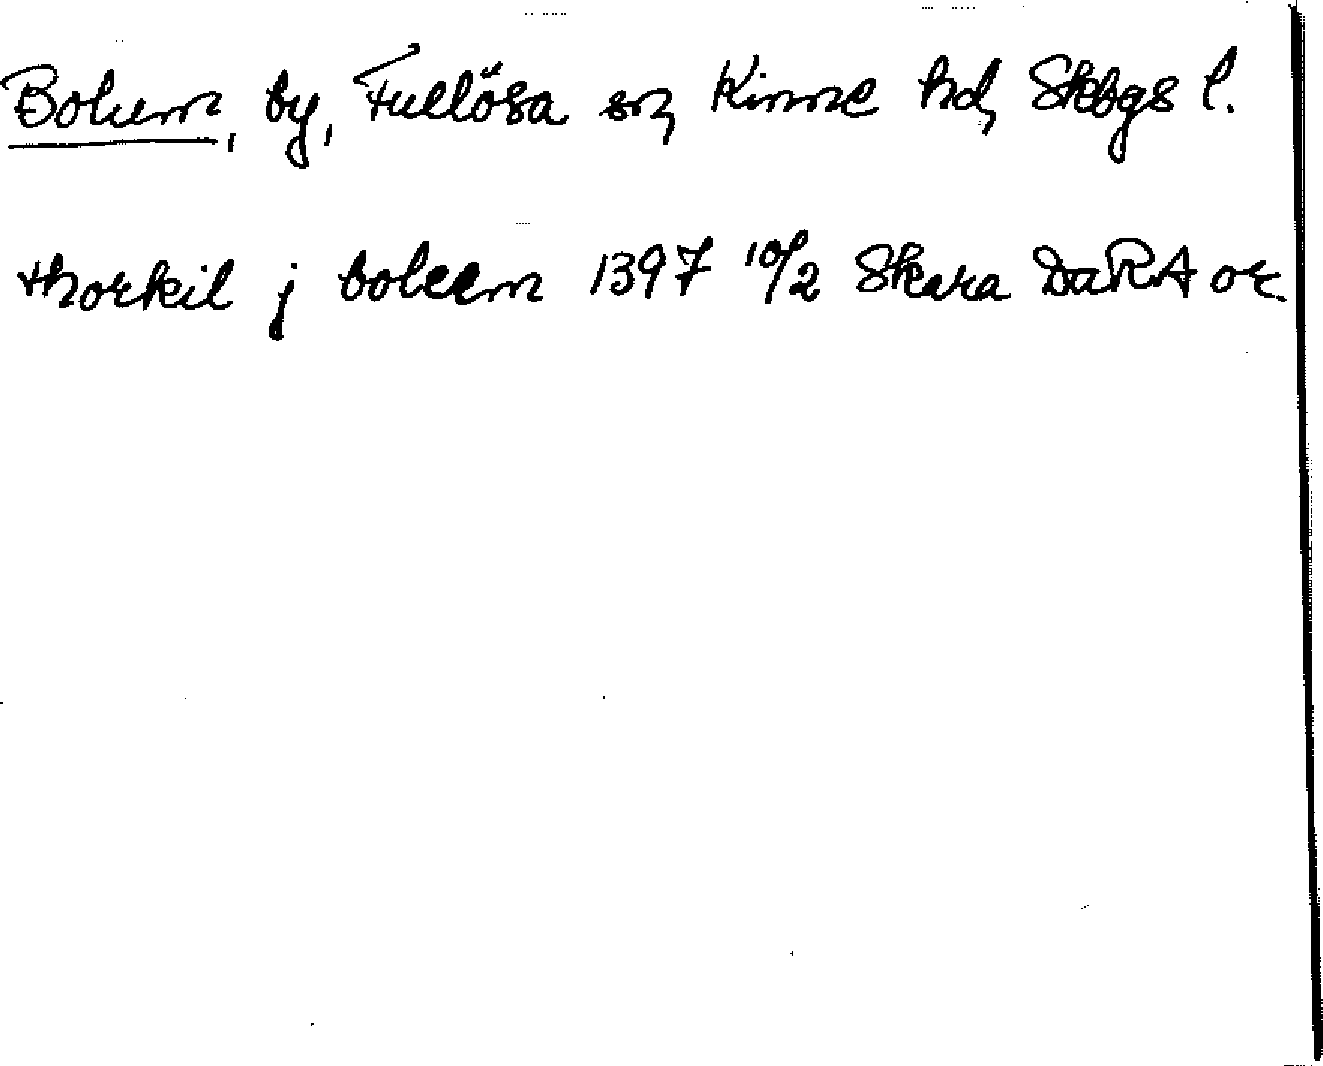 Bolum, by, Fullösa sn, Kinne hd, Skbgs l.
thorkil j boleem 1397 10/2 Skara DaRA or.